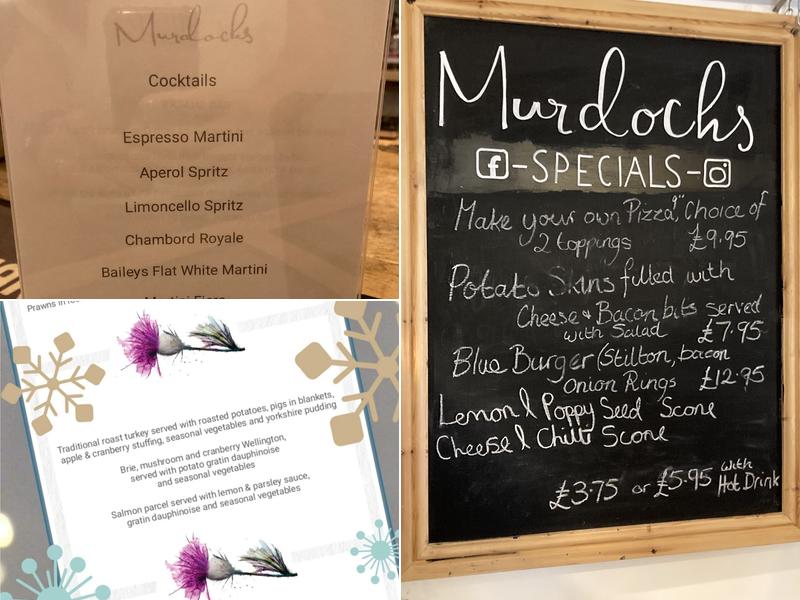 Murdochs
Cocktails
Espresso Martini
Aperol Spritz
Limoncello Spritz
Chambord Royale
Baileys Flat White Martini
Prawns in
Traditional roast turkey served with roasted potatoes, pigs in blankets,
apple & cranberry stuffing, seasonal vegetables and yorkshire pudding
Brie, mushroom and cranberry Wellington,
served with potato gratin dauphinoise
and seasonal vegetables
Salmon parcel served with lemon & parsley sauce,
gratin dauphinoise and seasonal vegetables
Murdochs
-SPECIALS-
Make your own Pizza 9", Choice of
2 toppings £9.95
Potato Skins filled with
Cheese & Bacon bits served
with Salad £7.95
Blue Burger (Stilton, bacon
Onion Rings £12.95
Lemon & Poppy Seed Scone
Cheese & Chilli Scone
£3.75 or £5.95 with
Hot Drink